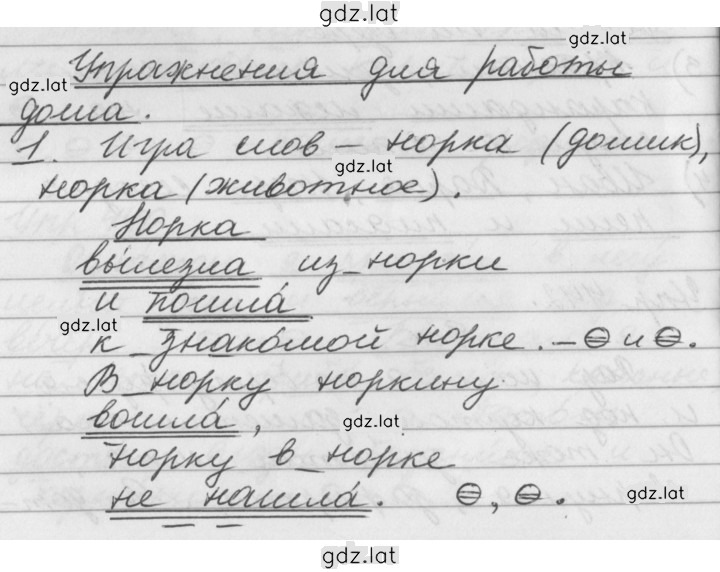 gdz.lat
gdz.lat
Упражнения для работы
gdz.lat
дома.
1. Игра слов – норка (домик),
gdz.lat
норка (животное).
Норка
вылезла из норки
и пошла́
gdz.lat
к знако́мой норке. – ⊖ и ⊖.
В норку норкину
вошла́,
gdz.lat
Норку в норке
не нашла́. ⊖, ⊖.
gdz.lat
gdz.lat